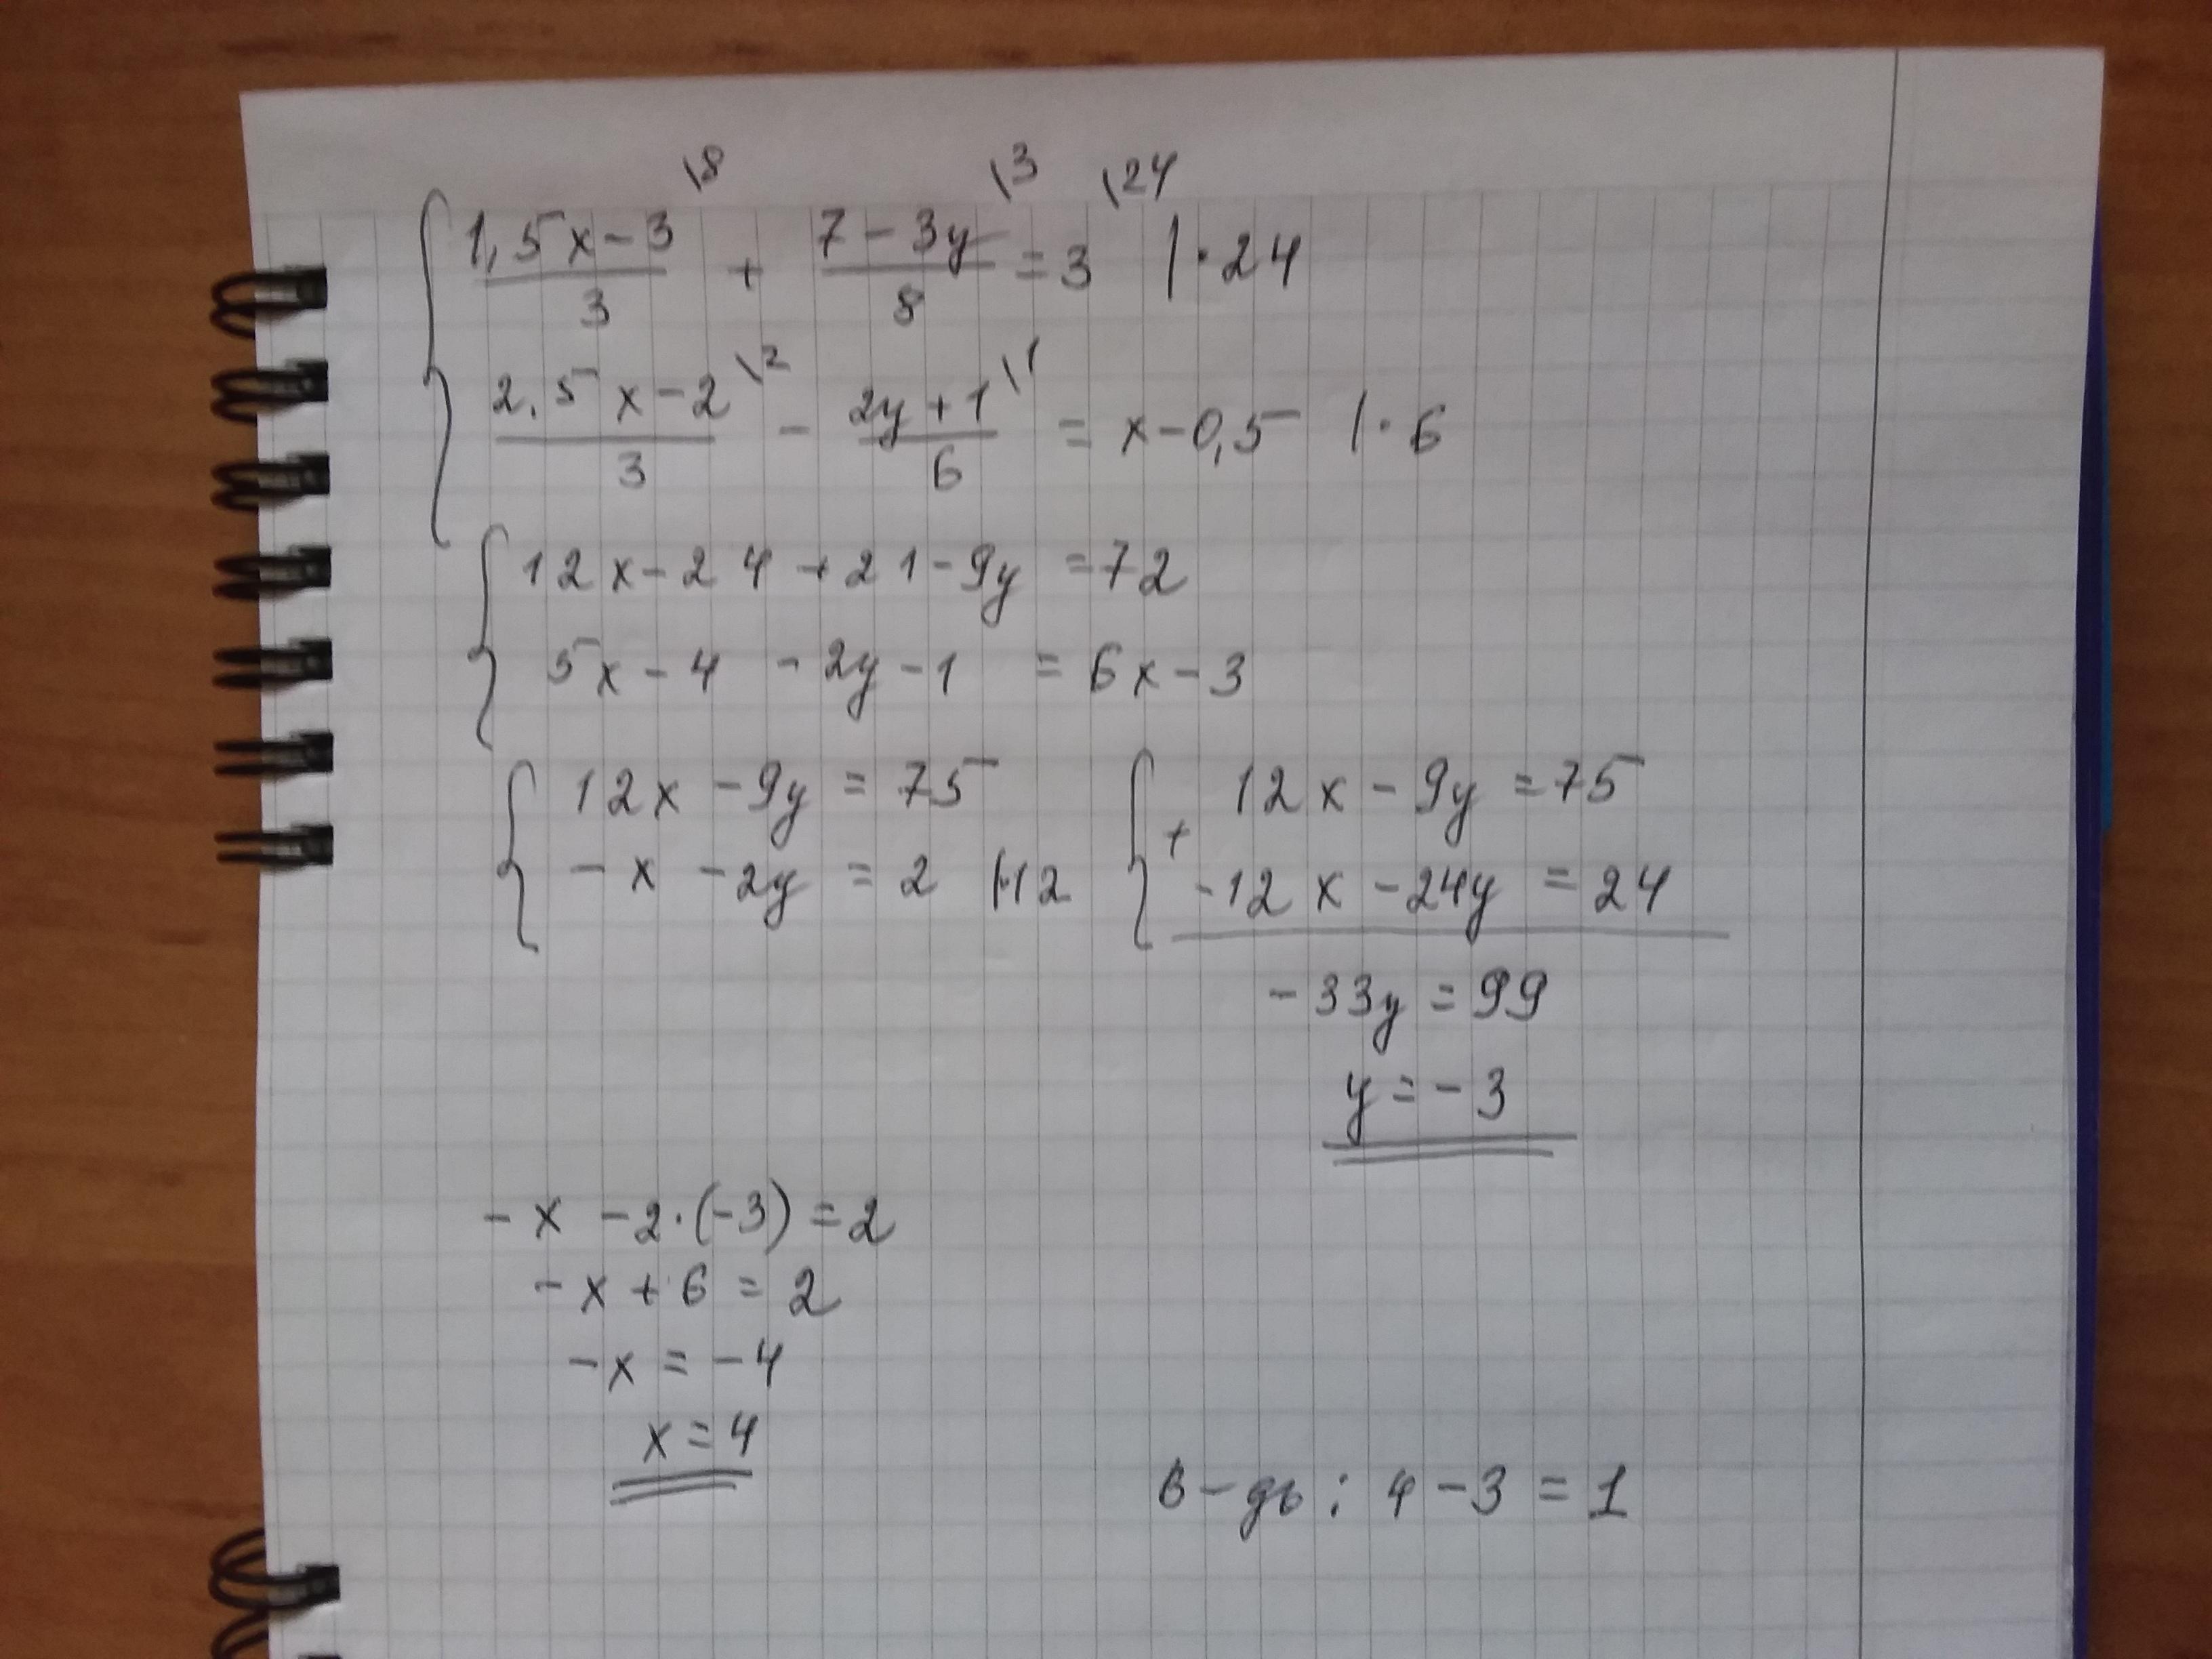 \8 \3 \24
1,5x-3/3 + 7-3y/8 = 3 |·24
2.5x-2/3 \2 - 2y+1/6 \1 = x-0,5 |·6
12x-24+21-9y=72
5x-4 -2y-1 = 6x-3
12x-9y=75
-x-2y=2 |·12
12x-9y=75
+
-12x-24y=24
-33y=99
y=-3
-x-2·(-3)=2
-x+6=2
-x=-4
x=4
в-дь: 4-3=1